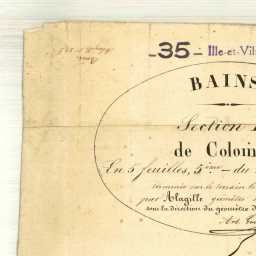 -35- Ille-et-Vil
BAINS
Section
de Colom
En 5 feuilles, 5ème du
terminée sur le terrain l
par Alagille géomètre
sous la direction du géomètre